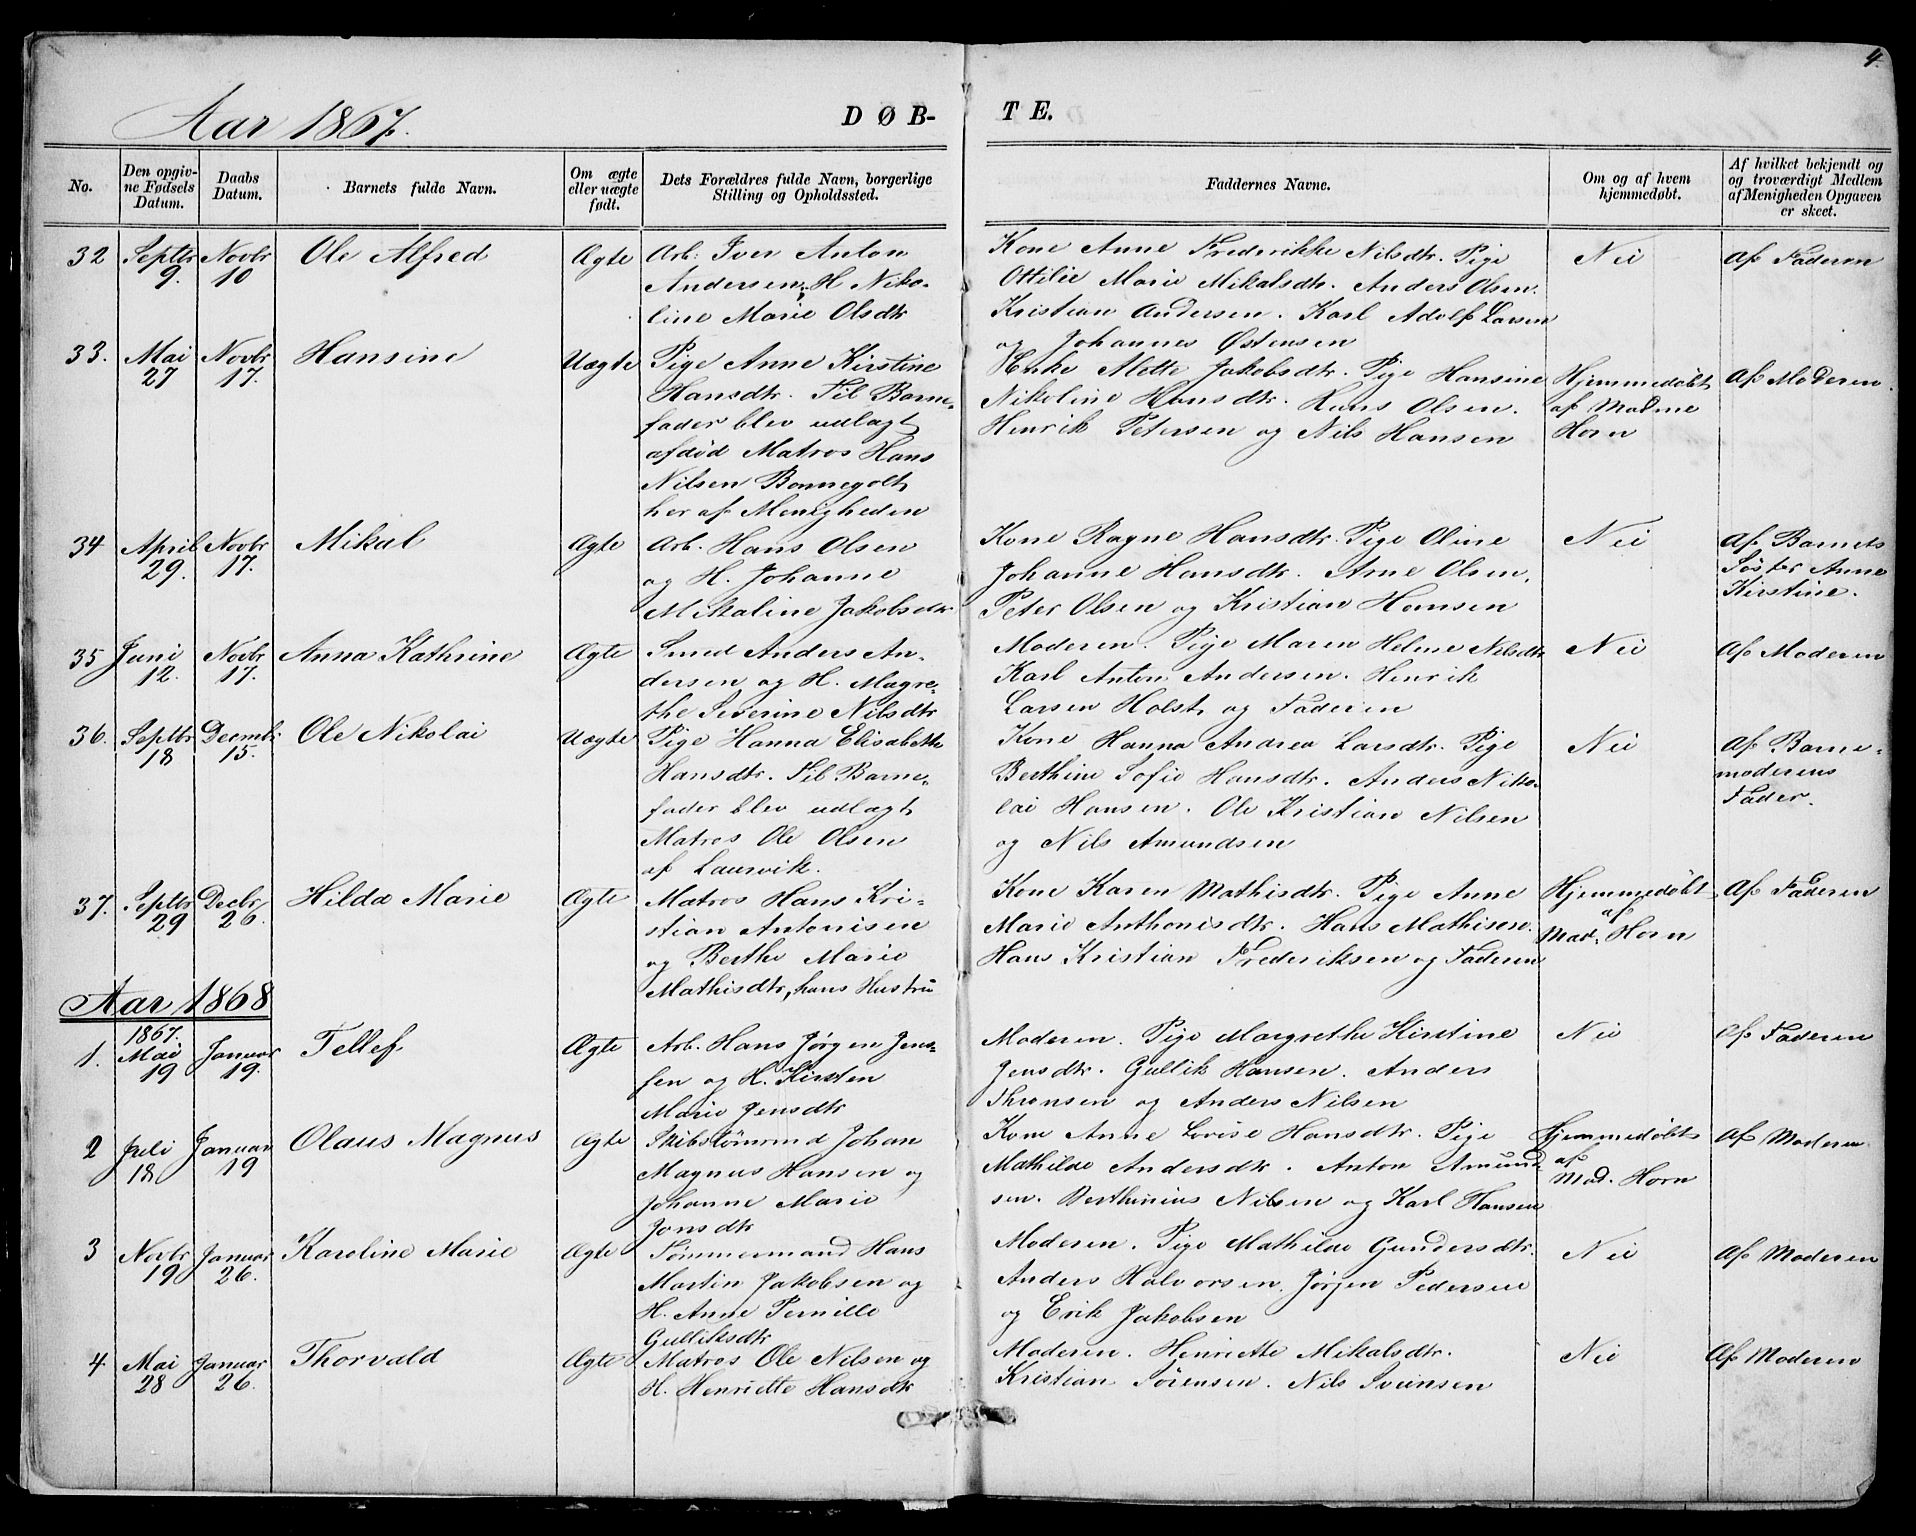 4.
Aar 1867.
DØB-
TE.
No.
Den opgiv-
ne Fødsels
Datum.
Daabs
Datum.
Barnets fulde Navn.
Om ægte
eller uægte
født.
Dets Forældres fulde Navn, borgerlige
Stilling og Opholdssted.
Faddernes Navne.
Om og af hvem
hjemmedøbt.
Af hvilket bekjendt og
og troværdigt Medlem
af Menigheden Opgaven
er skeet.
32
Septbr
9.
Novbr
10
Ole Alfred
Ægte
Arb: Iver Anton
Andersen, H Niko-
line Marie Olsdtr
Kone Anne Frederikke Nilsdtr. Pige
Ottilie Marie Mikalsdtr. Anders Olsen.
Kristian Andersen. Karl Adolf Larsen
og Johannes Østensen
Nei
Af Faderen
33.
Mai
27
Novbr
17.
Hansine
Uægte
Pige Anne Kirstine
Hansdtr. Til Barne-
fader blev udlagt
afdød Matros Hans
Nilsen Bonnegolt
her af Menigheden
Enke Mette Jakobsdtr. Pige Hansine
Nikoline Hansdtr. Hans Olsen.
Henrik Petersen og Nils Hansen
Hjemmedøbt
af Madme
Horn
Af Moderen
34
April
29.
Novbr
17.
Mikal
Ægte
Arb. Hans Olsen
og H. Johanne
Mikaline Jakobsdtr
Kone Ragne Hansdtr. Pige Oline
Johanne Hansdtr. Arne Olsen,
Peter Olsen og Kristian Hansen
Nei
Af Barnets
Søster Anne
Kirstine.
35
Juni
12.
Novbr
17.
Anna Kathrine
Ægte
Smed Anders An-
dersen og H. Magre-
the Severine Nilsdtr
Moderen. Pige Maren Helene Nilsdtr
Karl Anton Andersen. Henrik
Larsen Holst, og Faderen
Nei
Af Moderen
36.
Septbr
18
Decmbr
15.
Ole Nikolai
Uægte
Pige Hanna Elisabethe
Hansdtr. Til Barne-
fader blev udlagt
Matros Ole Olsen
af Laurvik.
Kone Hanna Andrea Larsdtr. Pige
Berthine Sofie Hansdtr. Anders Niko-
lai Hansen. Ole Kristian Nilsen
og Nils Amundsen
Nei
Af Barne-
moderens
Fader.
37.
Septbr
29
Decbr
26.
Hilda Marie
Ægte
Matros Hans Kri-
stian Antonisen
og Berthe Marie
Mathisdtr, hans Hustru
Kone Karen Mathisdtr. Pige Anne
Marie Anthonisdtr. Hans Mathisen.
Hans Kristian Frederiksen og Faderen
Hjemmedøbt
af
Mad. Horn
Af Faderen
Aar 1868
1.
1867.
Mai
19
Januar
19.
Tellef
Ægte
Arb. Hans Jørgen Jens-
sen og H. Kirsten
Marie Jensdtr
Moderen. Pige Margrethe Kirstine
Jensdtr. Gullik Hansen. Anders
Thronsen og Anders Nilsen
Nei
Af Faderen
2
Juli
18
Januar
19
Olaus Magnus
Ægte
Skibstømrmd Johan
Magnus Hansen og
Johanne Marie
Jonsdtr
Kone Anne Lovise Hansdtr. Pige
Mathilde Andersdtr. Anton Amund-
sen. Berthinius Nilsen og Karl Hansen
Hjemmedøbt
af
Mad. Horn
Af Moderen
3
Novbr
19
Januar
26.
Karoline Marie
Ægte
Tømmermand Hans
Martin Jakobsen og
H. Anne Pernille
Gulliksdtr
Moderen. Pige Mathilde Gundersdtr.
Anders Halvorsen. Jørgen Pedersen
og Erik Jakobsen
Nei
Af Moderen
4
Mai
28
Januar
26.
Thorvald
Ægte
Matros Ole Nilsen og
H. Henriette Hansdtr
Moderen. Henriette Mikalsdtr.
Kristian Sørensen. Nils Svensen
Nei
Af Moderen